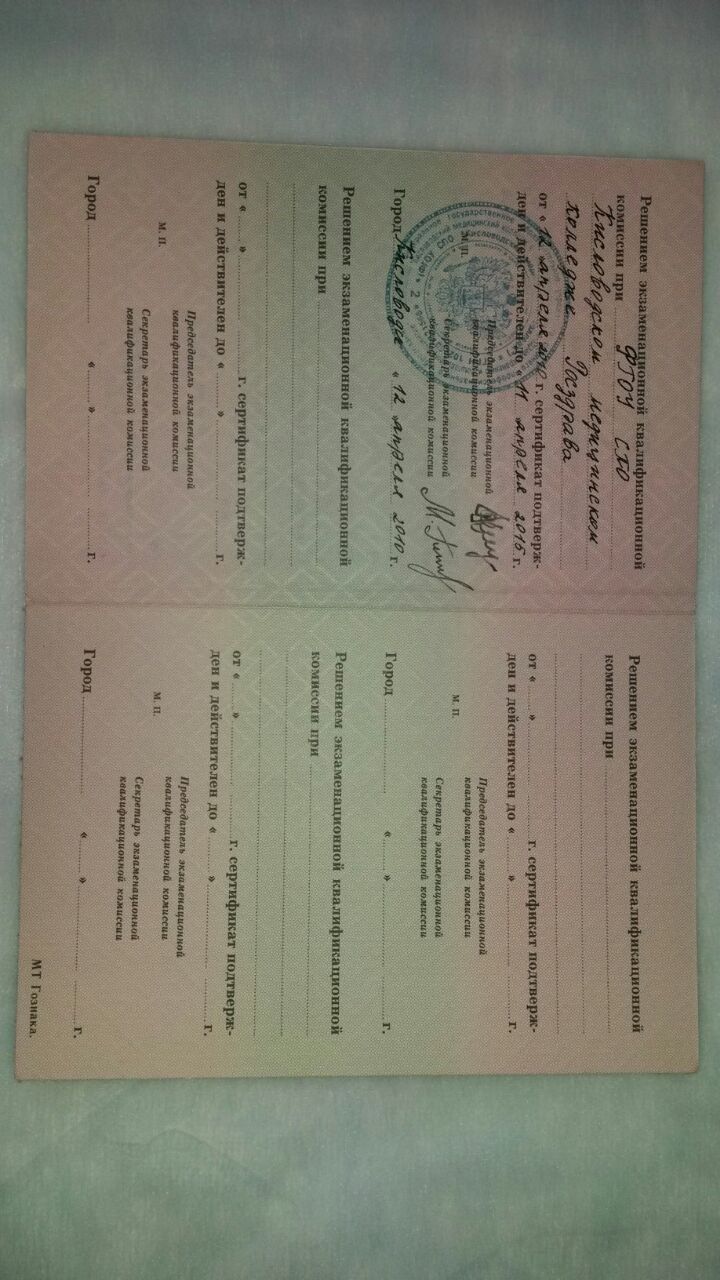 Решением экзаменационной квалификационной
комиссии при ФГОУ СПО
Кисловодском медицинском
колледже Росздрава
от « 12 апреля 2010 г. сертификат подтверж-
ден и действителен до « 11 апреля 2015 г.
М. П.
Председатель экзаменационной
квалификационной комиссии
Секретарь экзаменационной
квалификационной комиссии
Город Кисловодск « 12 апреля 2010 г.
Решением экзаменационной квалификационной
комиссии при
от « » г. сертификат подтверж-
ден и действителен до « » г.
М. П.
Председатель экзаменационной
квалификационной комиссии
Секретарь экзаменационной
квалификационной комиссии
Город « » г.
Решением экзаменационной квалификационной
комиссии при
от « » г. сертификат подтверж-
ден и действителен до « » г.
М. П.
Председатель экзаменационной
квалификационной комиссии
Секретарь экзаменационной
квалификационной комиссии
Город « » г.
Решением экзаменационной квалификационной
комиссии при
от « » г. сертификат подтверж-
ден и действителен до « » г.
М. П.
Председатель экзаменационной
квалификационной комиссии
Секретарь экзаменационной
квалификационной комиссии
Город « » г.
МТ Гознака.